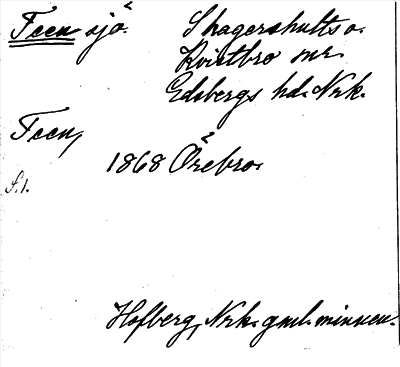 Teen sjö.² Skagershults o.
Kvistbro snr.
Edsbergs hd. Nrk.
Teen,
1868 Örebro.²
S. 1.
Hofberg, Nrk. gml. minnen.